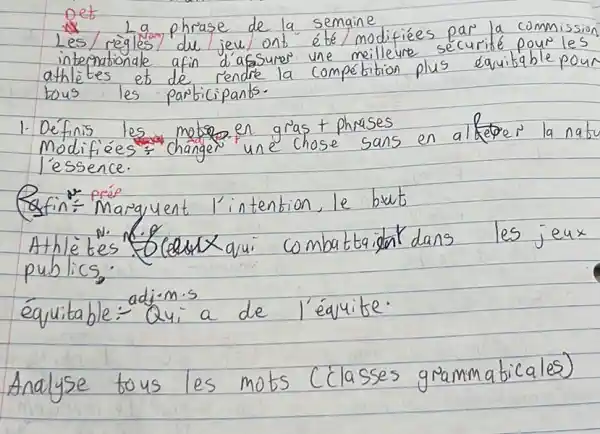 Det
La phrase de la semaine
Les / règles / du / jeu / ont été / modifiées par la commission
internationale afin d'assurer une meilleure sécurité pour les
athlètes et de rendre la compétition plus équitable pour
tous les participants.
1- Définis les mots en gras + phrases
Modifiées ÷ changer une chose sans en altérer la natu
l'essence.
prép
afin ÷ Marquent l'intention, le but
N.
Athlètes ceux qui combattaient dans les jeux
publics.
adj.m.s
équitable ÷ Qui a de l'équite.
Analyse tous les mots (classes grammaticales)